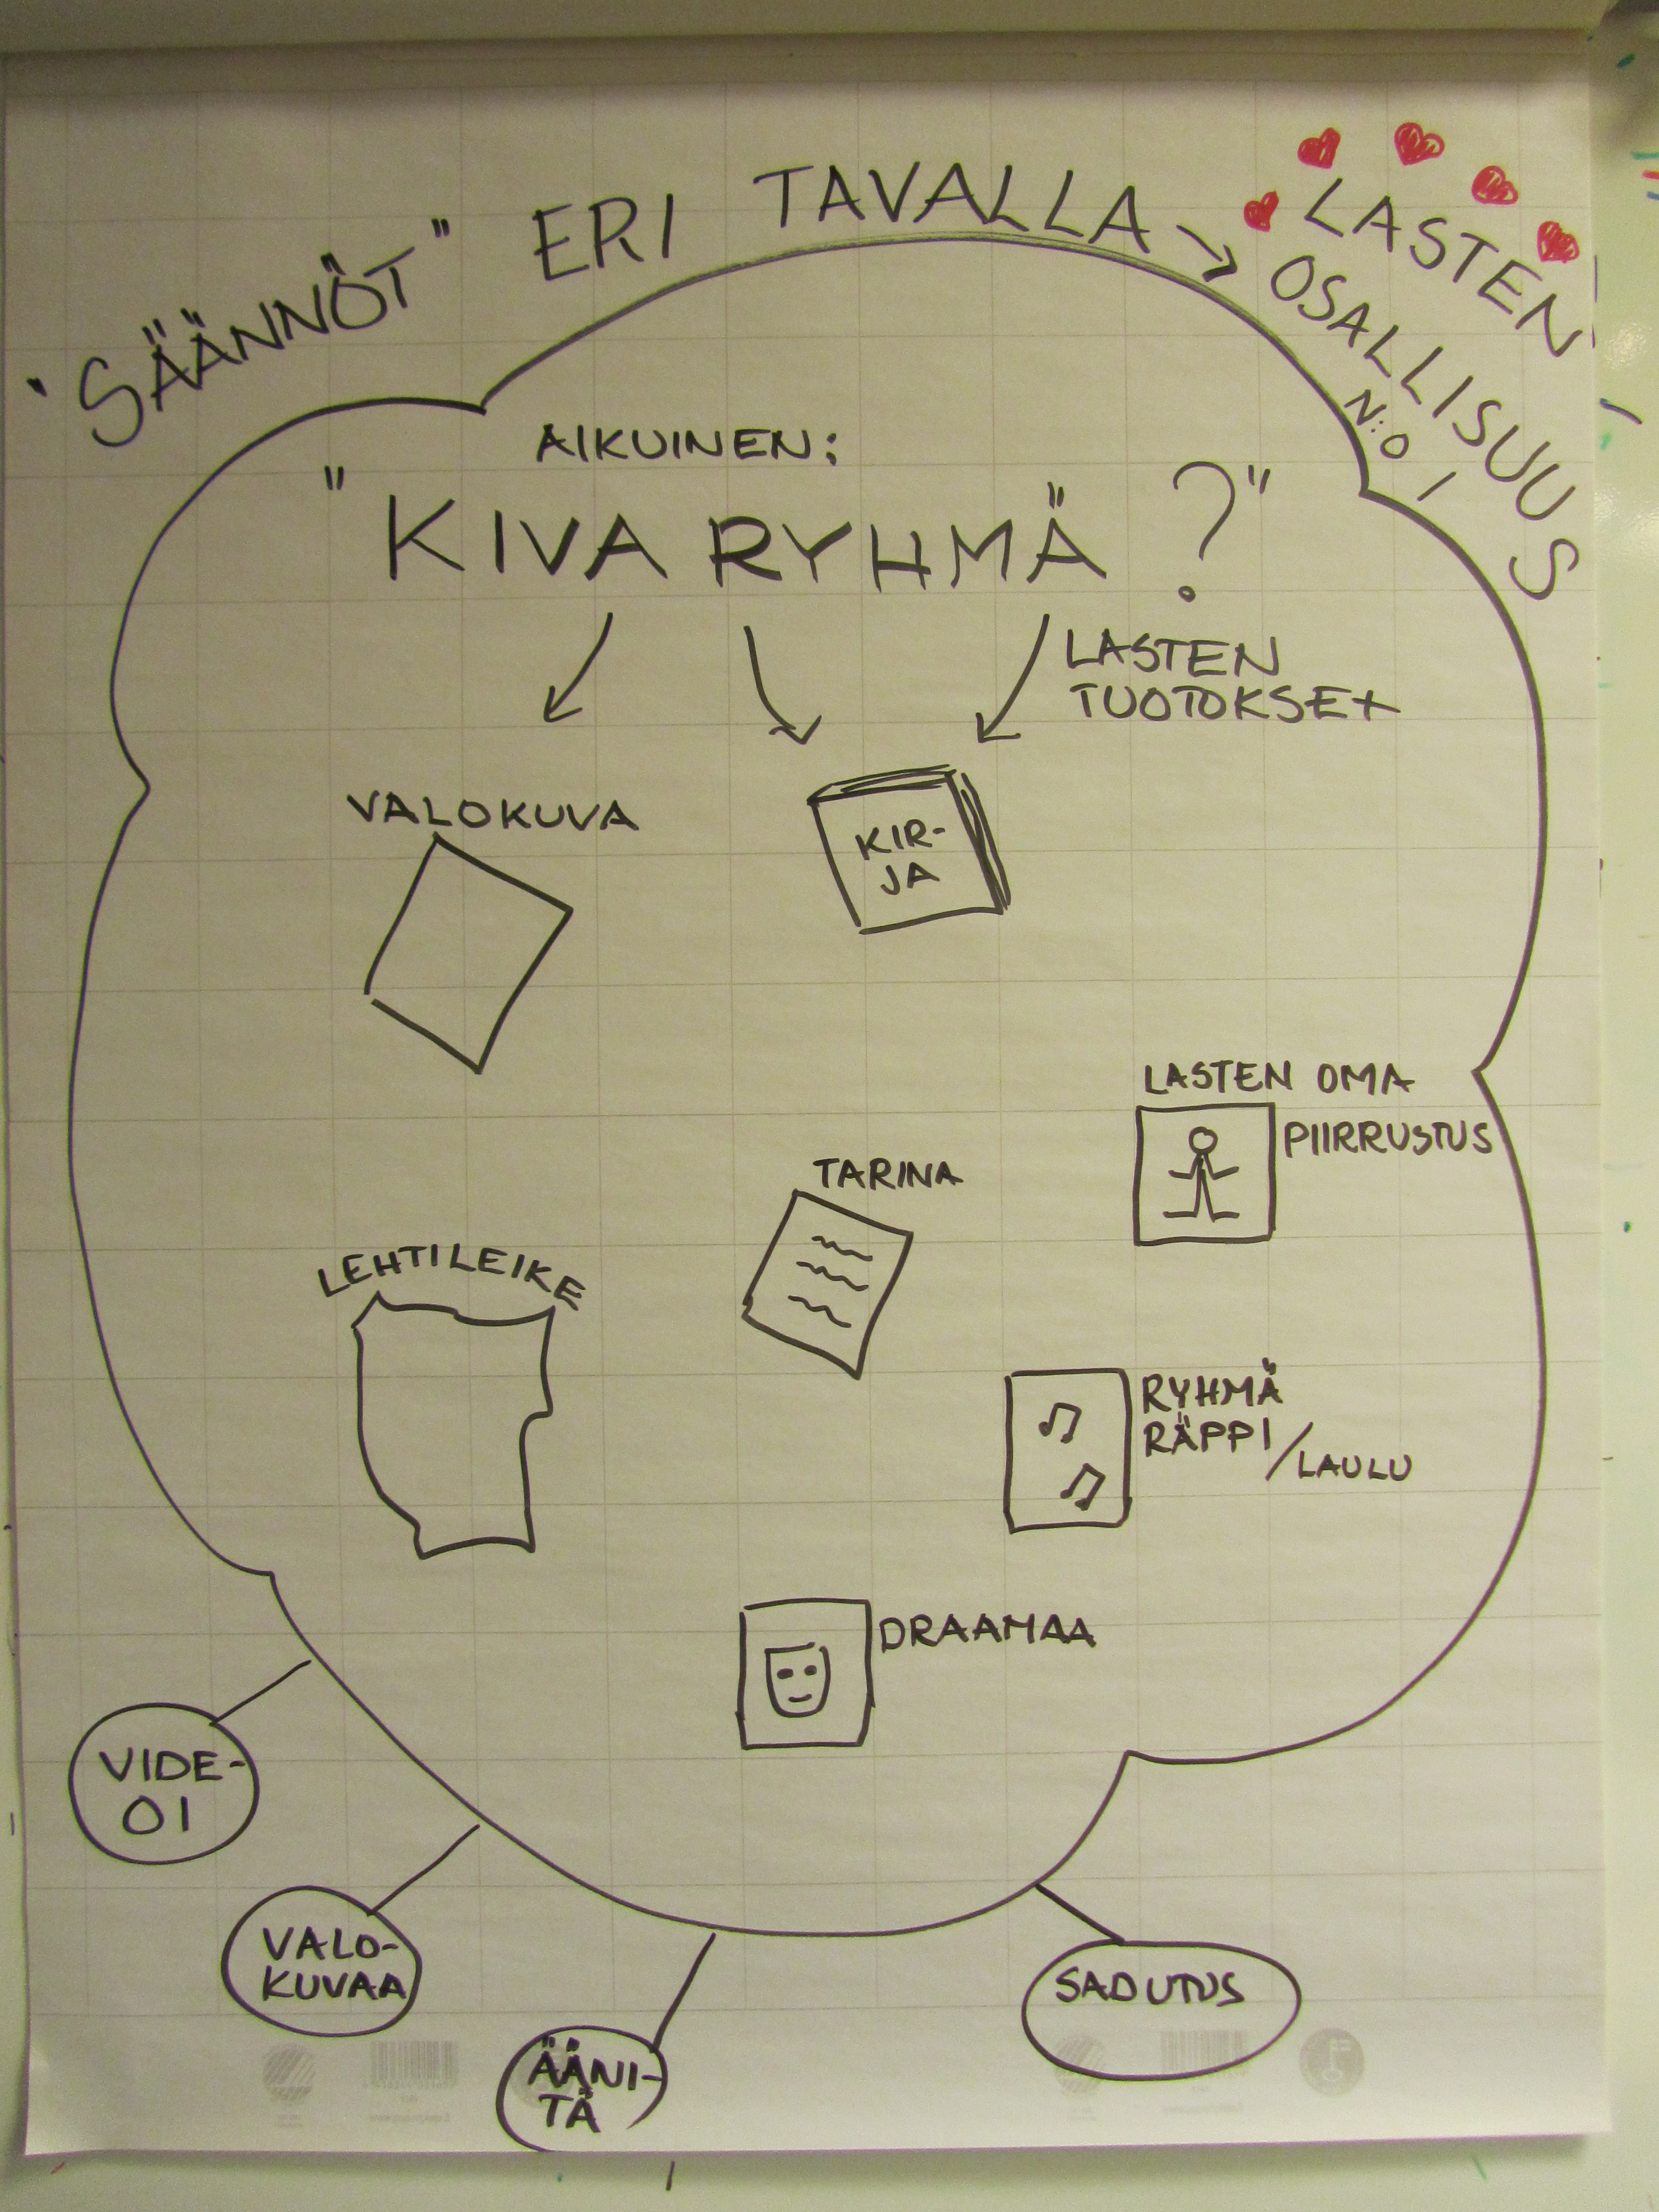 "SÄÄNNÖT" ERI TAVALLA → LASTEN
OSALLISUUS
N:O 1
AIKUINEN:
"KIVA RYHMÄ ?"
LASTEN
TUOTOKSET
VALOKUVA
KIR-
JA
LASTEN OMA
PIIRRUSTUS
TARINA
LEHTILEIKE
RYHMÄ
RÄPPI/LAULU
DRAAMAA
VIDE-
OI
VALO-
KUVAA
ÄÄNI-
TÄ
SADUTUS